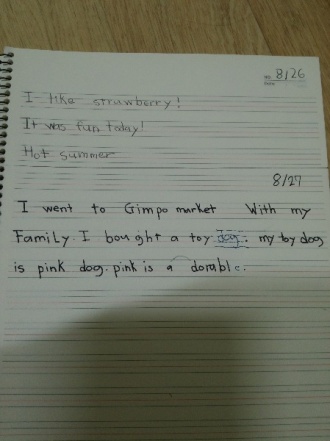 8/26
I like strawberry!
It was fun today!
Hot summer
8/27
I went to Gimpo market With my
Family. I bought a toy dog. my toy dog
is pink dog. pink is a dorable.